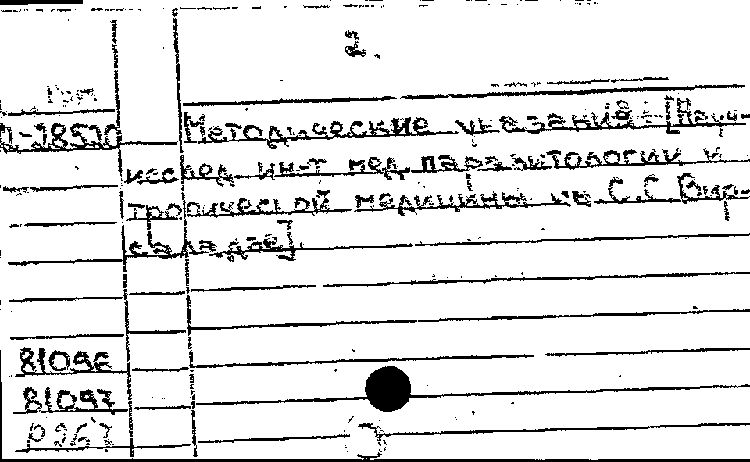 2.
Грм
Д-28520 Методические указания. [Науч-
исслед. ин-т мед. паразитологии и
тропической медицины им. С.С. Вир-
саладзе].
81096
81097
р 267